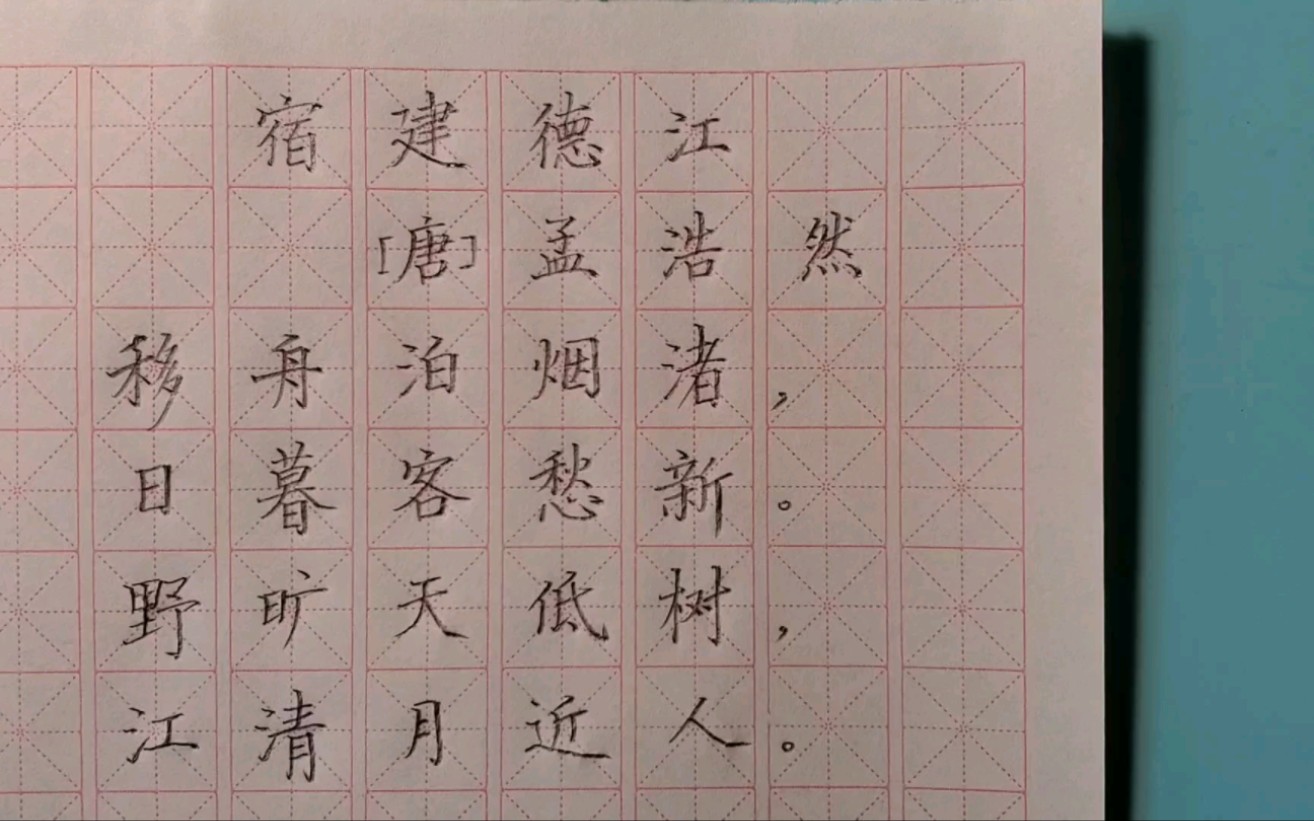 宿建德江
[唐]孟浩然
移舟泊烟渚,
日暮客愁新。
野旷天低树,
江清月近人。